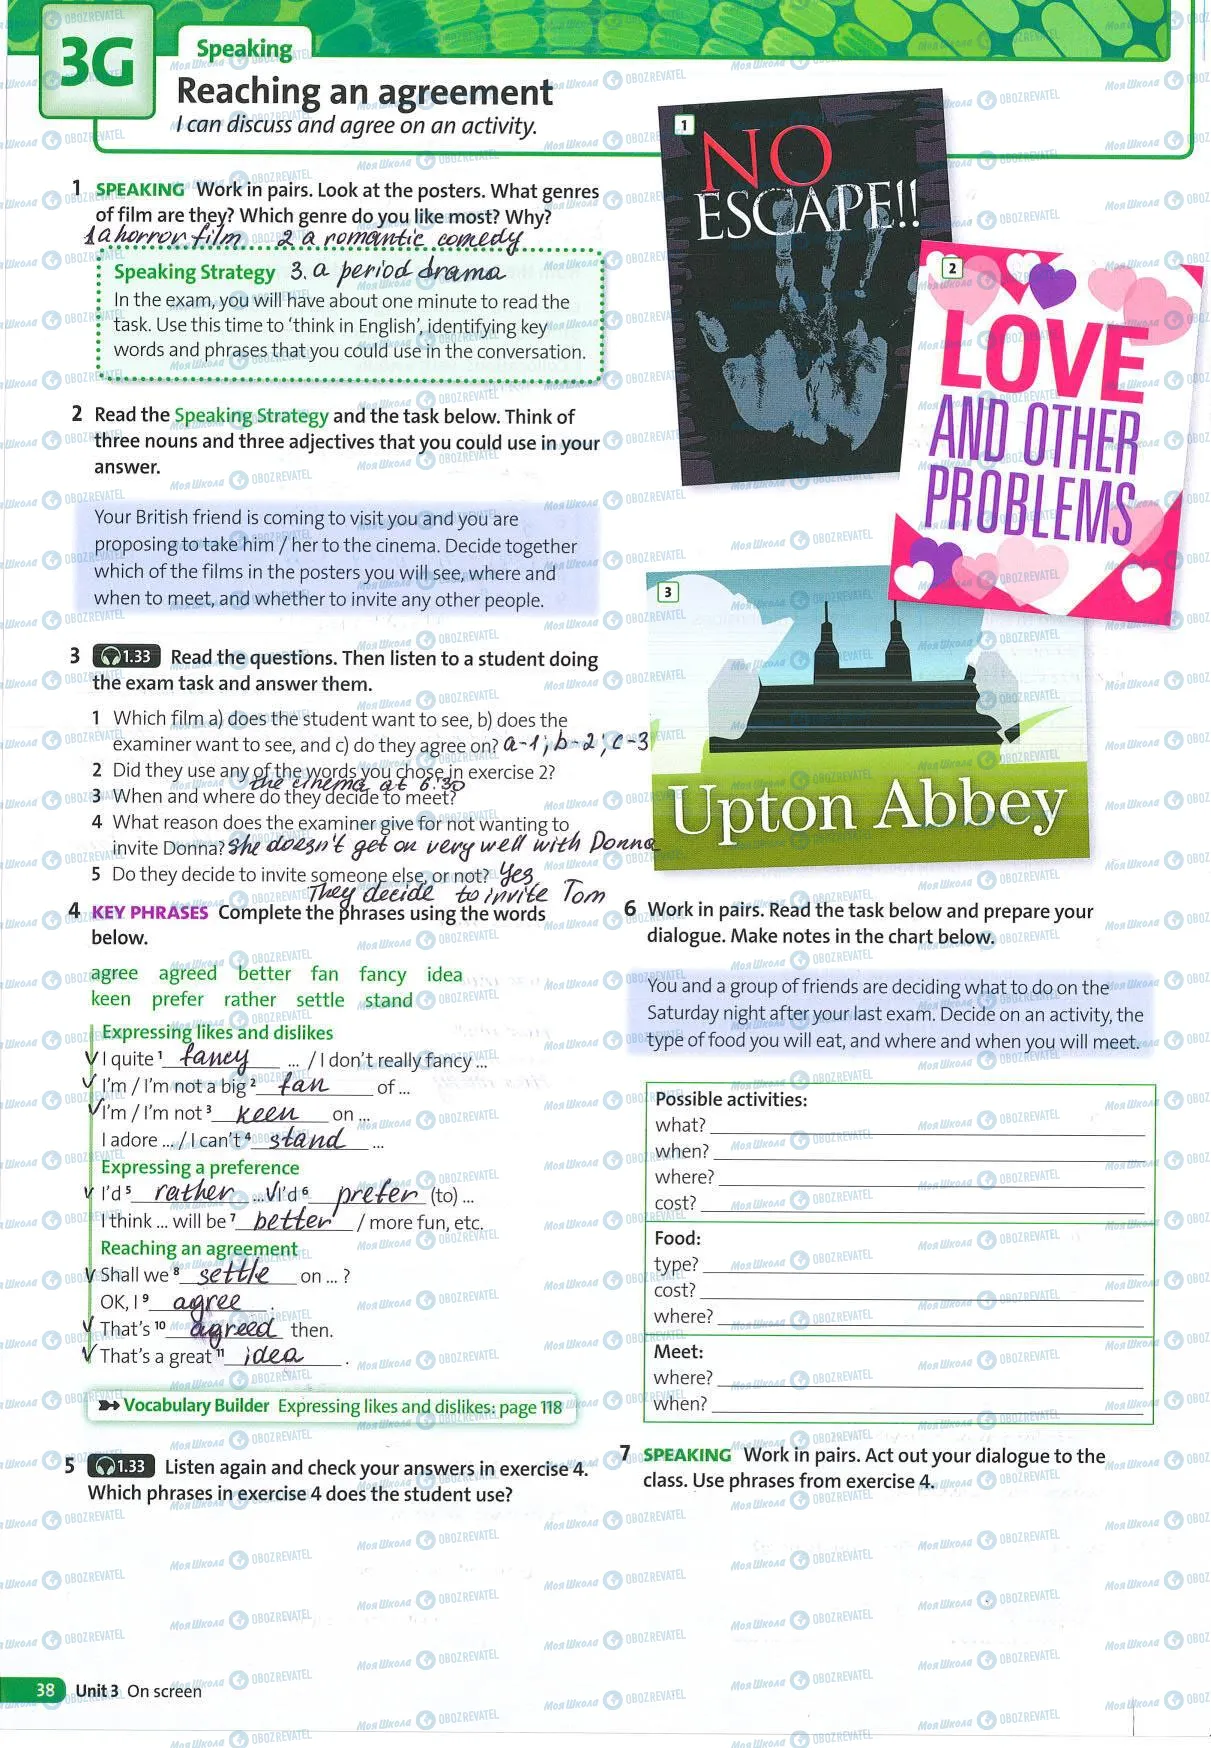 3G
Speaking
Reaching an agreement
I can discuss and agree on an activity.
1 SPEAKING Work in pairs. Look at the posters. What genres
of film are they? Which genre do you like most? Why?
1 a horror film 2 a romantic comedy
Speaking Strategy 3. a period drama
In the exam, you will have about one minute to read the
task. Use this time to ‘think in English’, identifying key
words and phrases that you could use in the conversation.
2 Read the Speaking Strategy and the task below. Think of
three nouns and three adjectives that you could use in your
answer.
Your British friend is coming to visit you and you are
proposing to take him / her to the cinema. Decide together
which of the films in the posters you will see, where and
when to meet, and whether to invite any other people.
3 1.33 Read the questions. Then listen to a student doing
the exam task and answer them.
1 Which film a) does the student want to see, b) does the
examiner want to see, and c) do they agree on? a-1; b-2; c-3
2 Did they use any of the words you chose in exercise 2?
the cinema at 6:30
3 When and where do they decide to meet?
4 What reason does the examiner give for not wanting to
invite Donna? She doesn't get on very well with Donna
5 Do they decide to invite someone else, or not? Yes
They decide to invite Tom
4 KEY PHRASES Complete the phrases using the words
below.
agree agreed better fan fancy idea
keen prefer rather settle stand
Expressing likes and dislikes
✓ I quite 1 fancy ... / I don’t really fancy ...
✓ I’m / I’m not a big 2 fan of ...
✓ I’m / I’m not 3 keen on ...
I adore ... / I can’t 4 stand ...
Expressing a preference
✓ I’d 5 rather ... ✓ I’d 6 prefer (to) ...
I think ... will be 7 better / more fun, etc.
Reaching an agreement
✓ Shall we 8 settle on ... ?
OK, I 9 agree .
✓ That’s 10 agreed then.
✓ That’s a great 11 idea .
Vocabulary Builder Expressing likes and dislikes: page 118
5 1.33 Listen again and check your answers in exercise 4.
Which phrases in exercise 4 does the student use?
1
NO
ESCAPE!!
2
LOVE
AND OTHER
PROBLEMS
3
Upton Abbey
6 Work in pairs. Read the task below and prepare your
dialogue. Make notes in the chart below.
You and a group of friends are deciding what to do on the
Saturday night after your last exam. Decide on an activity, the
type of food you will eat, and where and when you will meet.
Possible activities:
what?
when?
where?
cost?
Food:
type?
cost?
where?
Meet:
where?
when?
7 SPEAKING Work in pairs. Act out your dialogue to the
class. Use phrases from exercise 4.
38 Unit 3 On screen
Моя Школа OBOZREVATEL